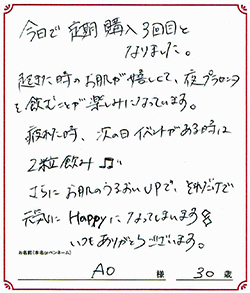 今日で定期購入3回目と
なりました。
起きた時のお肌が嬉しくて、夜プラセンタ
を飲むことが楽しみになっています。
疲れた時、次の日イベントがある時は
2粒飲み♫
さらにお肌のうるおいUPで、それだけで
元気にHappyになってしまいます
いつもありがとうございます。
お名前(本名orペンネーム)
AO 様 30歳